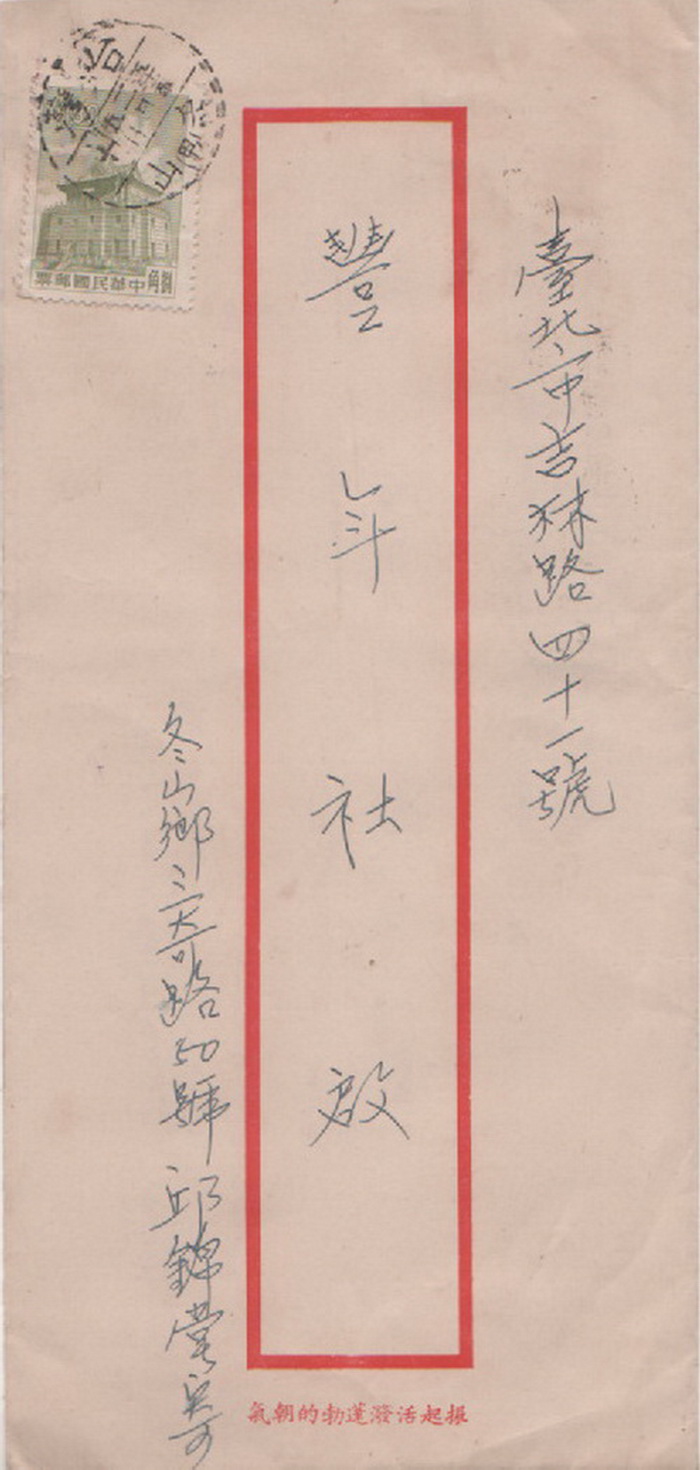 臺北市吉林路四十一號
豐年社啟
冬山鄉三奇路50號 邱錦棠寄
振起活潑蓬勃的朝氣
中華民國郵票
捌角